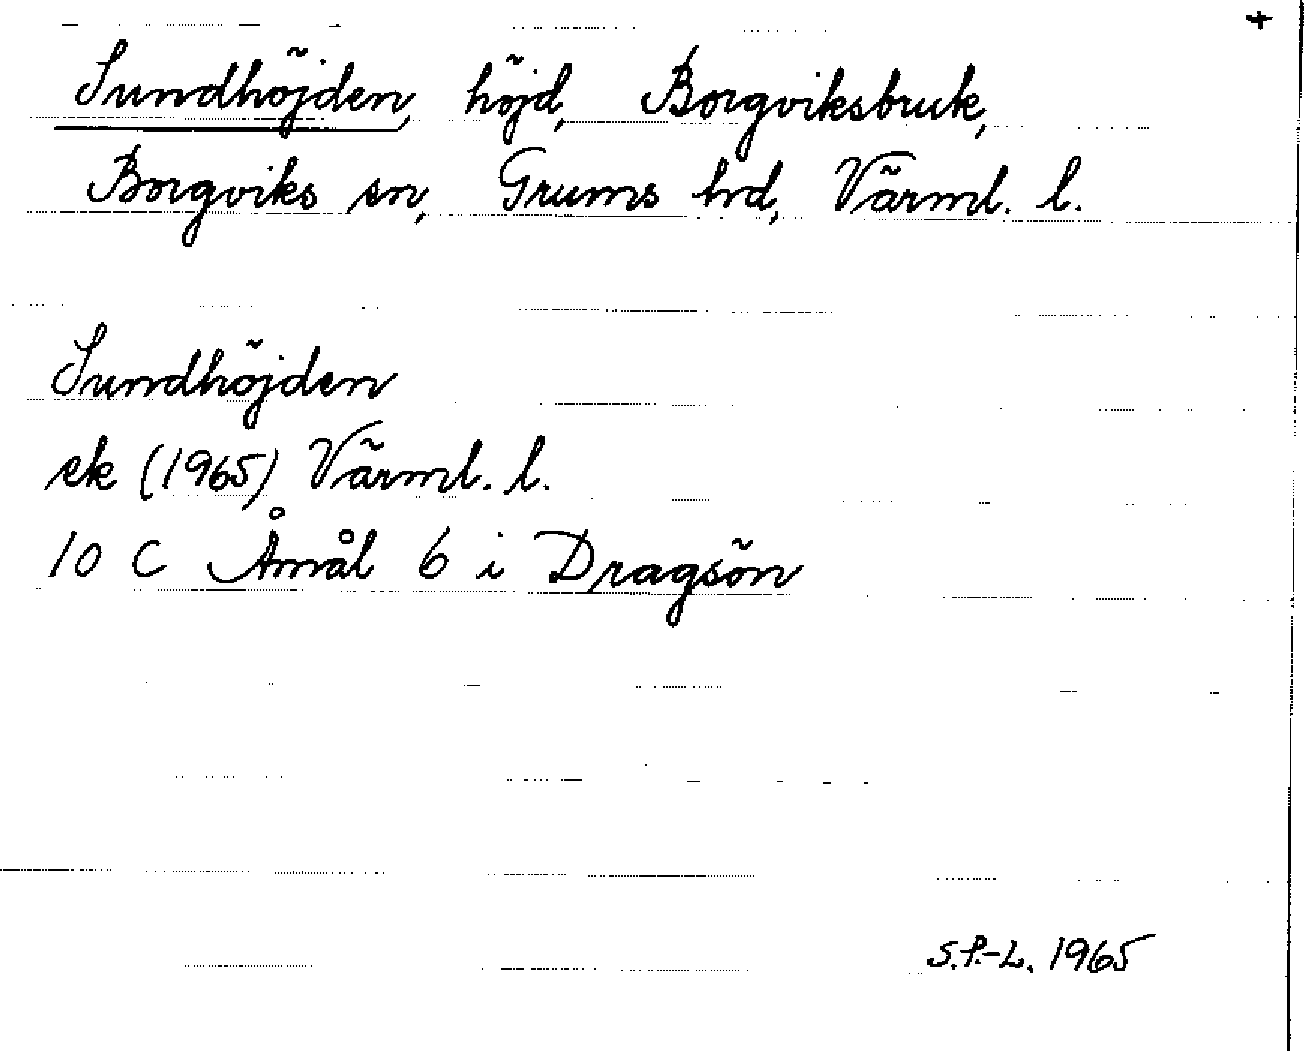 +
Sundhöjden, höjd, Borgviksbruk,
Borgviks sn, Grums hd, Värml. l.
Sundhöjden
ek (1965) Värml. l.
10 C Åmål 6 i Dragsön
S.P.-L. 1965